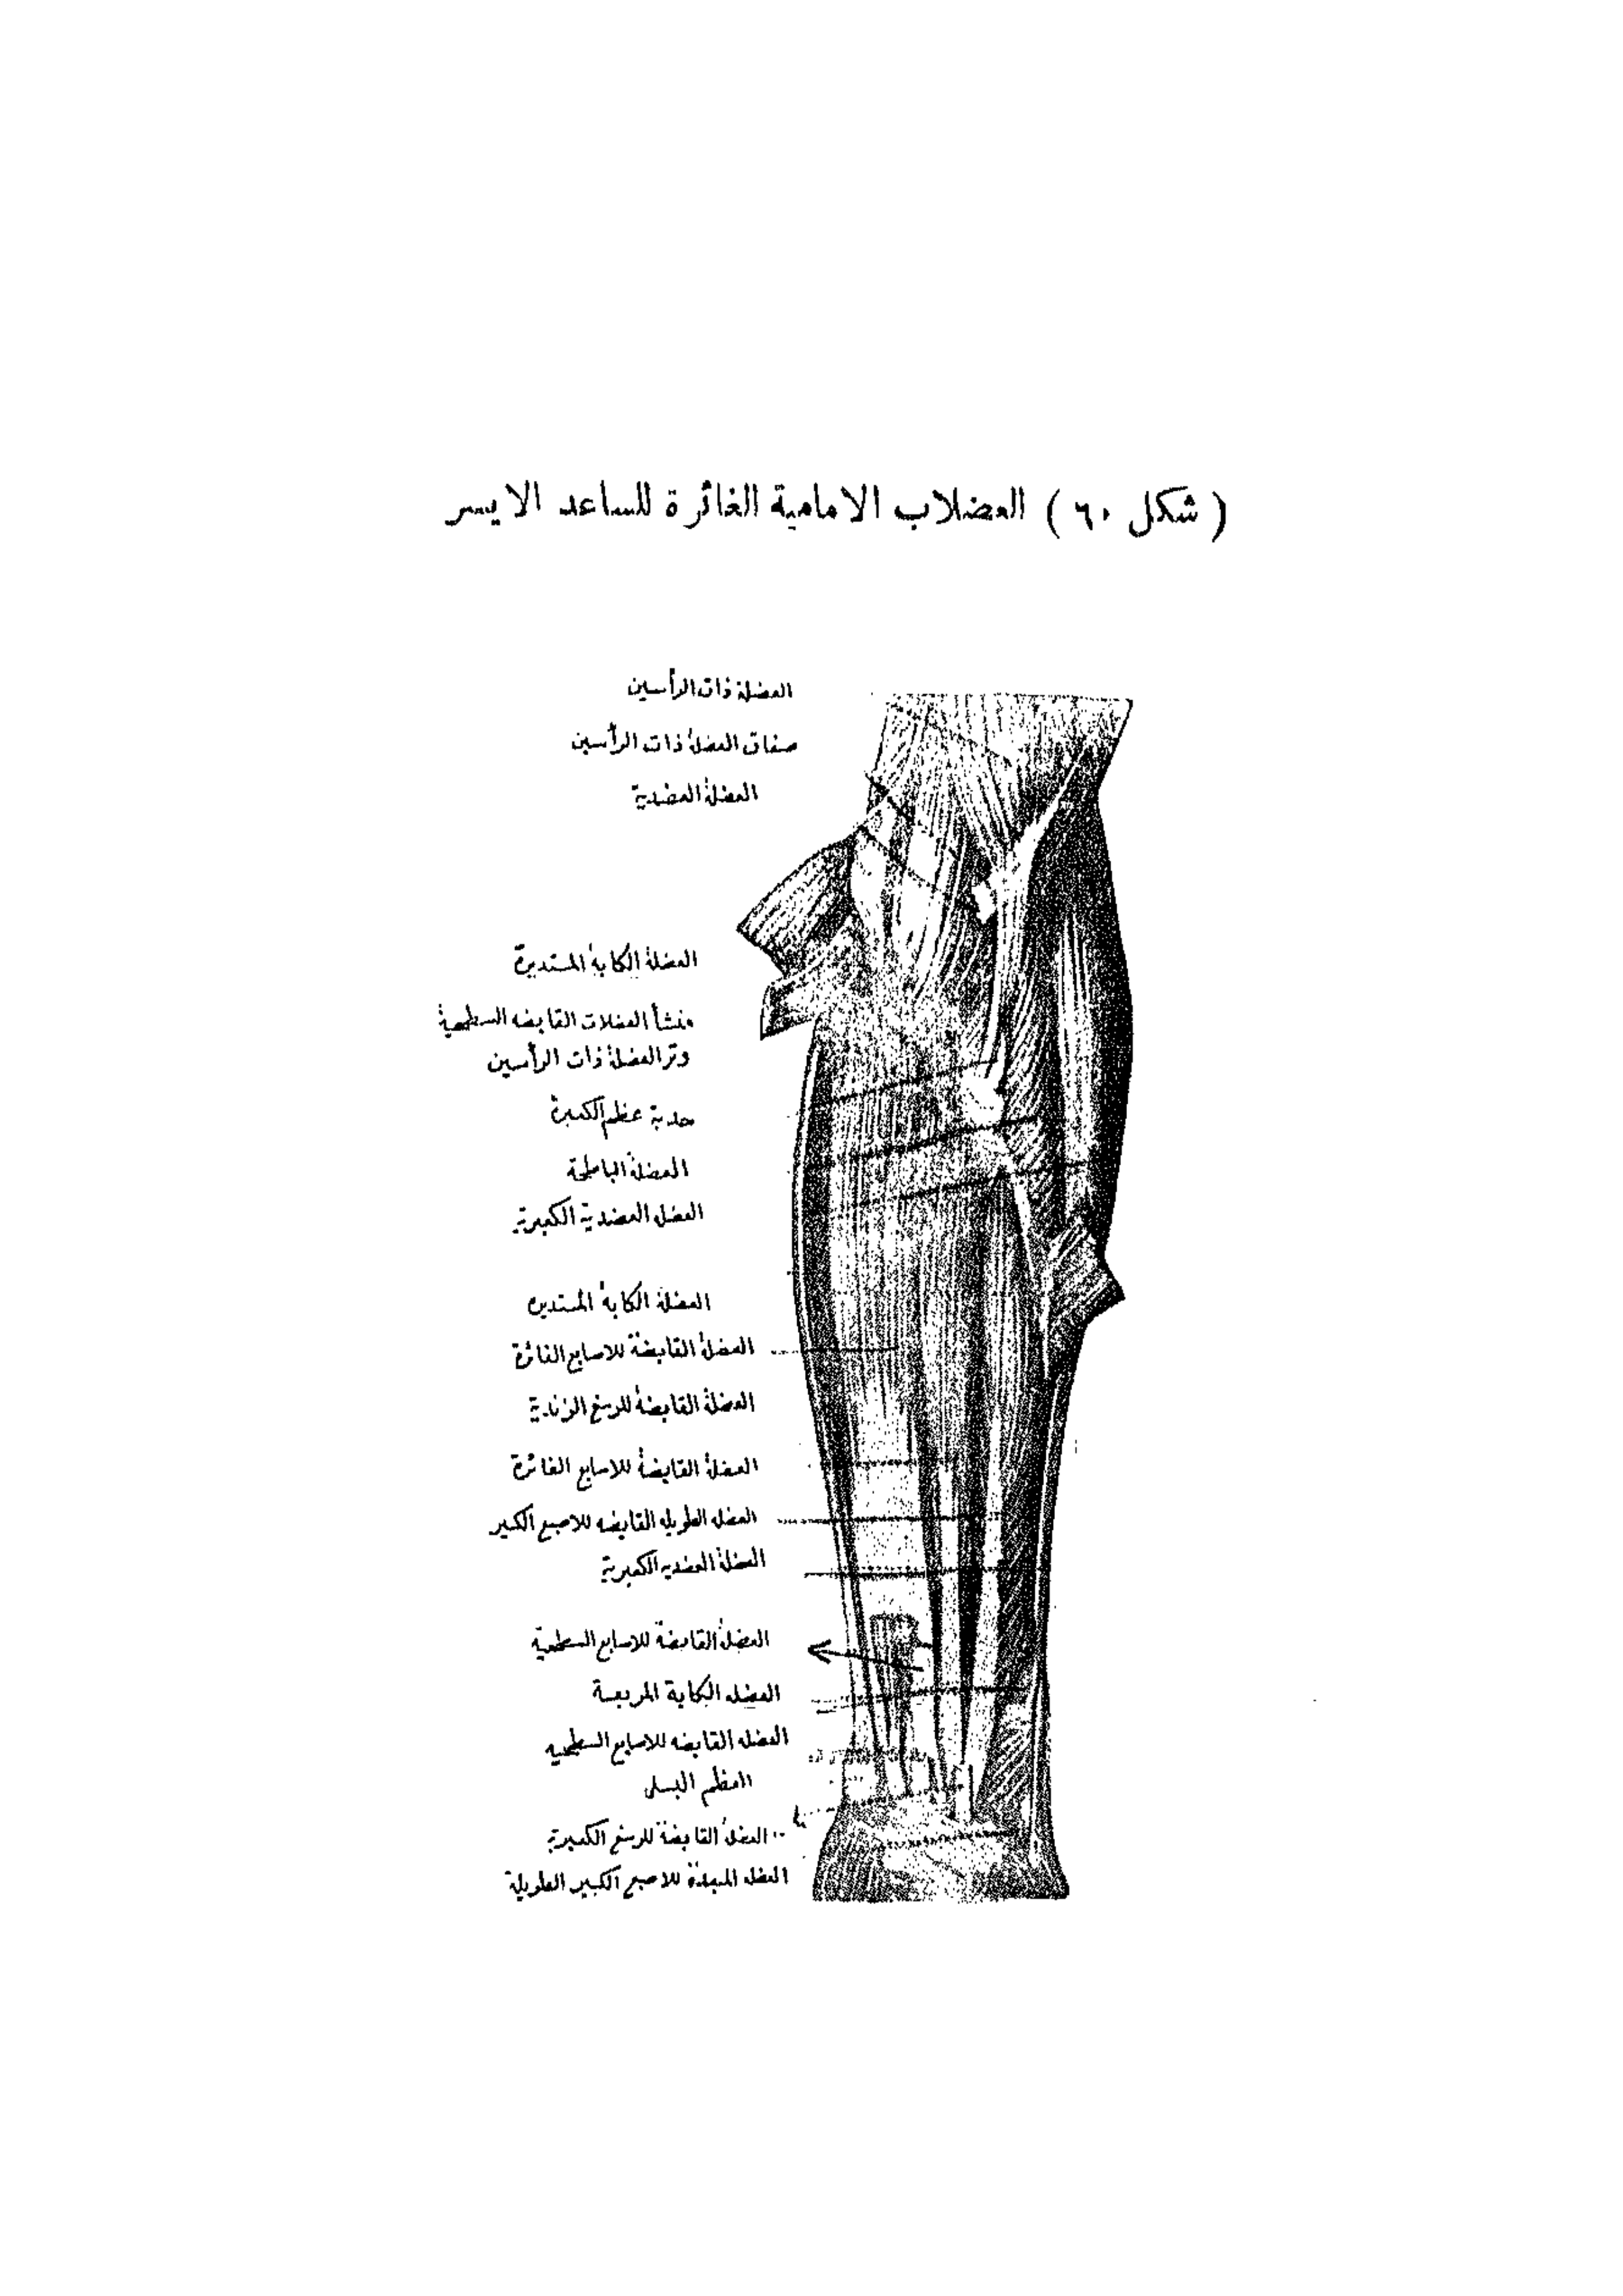 ( شكل ٦٠ ) العضلات الامامية الغائرة للساعد الايسر
العضلة ذات الرأسين
صفاق العضلة ذات الرأسين
العضلة العضدية
العضلة الكابة المستديرة
منشأ العضلات القابضه السطحية
وتر العضلة ذات الرأسين
حدبة عظم الكعبرة
العضلة الباطحة
العضله العضدية الكعبرية
العضلة الكابة المستديره
العضلة القابضة للاصابع الغائرة
العضلة القابضة للرسغ الزندية
العضلة القابضة للاصابع الغائرة
العضله الطويله القابضه للاصبع الكبير
العضلة العضديه الكعبرية
العضلة القابضة للاصابع السطحية
العضله الكابة المربعة
العضله القابضه للاصابع السطحيه
العظم البسلى
العضلة القابضة للرسغ الكعبرية
العضله المبعدة للاصبع الكبير الطويلة